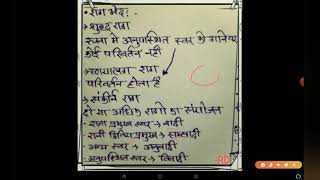 • राग भेद :-
→ शुद्ध राग
इसमे अनुपस्थित स्वर के गानेपर
कोई परिवर्तन नही
→ छायालग राग
परिवर्तन होता है
→ संकीर्ण राग
दो या अधिक रागो का संयोजन
- राजा प्रमुख स्वर → वादी
- रानी द्वितिय प्रमुख → सम्वादी
- अन्य स्वर → अनुवादी
- अनुपस्थित स्वर → विवादी
-RD